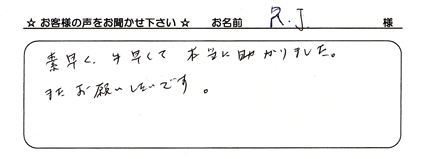 ☆ お客様の声をお聞かせ下さい ☆ お名前 R.J. 様
素早く、手早くて 本当に助かりました。
またお願いしたいです。